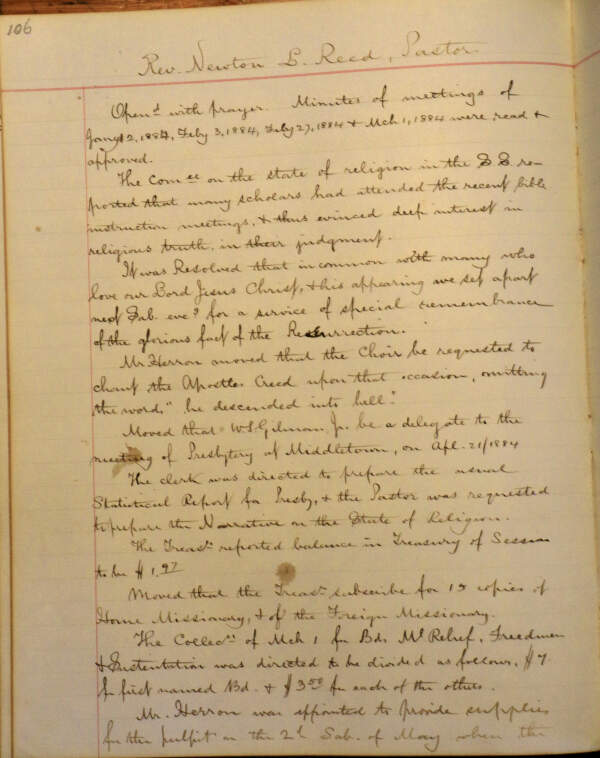 106
Rev. Newton L. Reed, Pastor
Open.d with prayer. Minutes of meetings of
Jany 12, 1884, Feby 3, 1884, Feby 27, 1884 & Mch 1, 1884 were read &
approved.
The Com.ee on the state of religion in the S.S. re-
ported that many scholars had attended the recent bible
instruction meetings, & thus evinced deep interest in
religious truth, in their judgment.
It was Resolved that in common with many who
love our Lord Jesus Christ, & his appearing we set apart
next Sab. eve.g for a service of special remembrance
of the glorious fact of the Resurrection.
Mr Herron moved that the Choir be requested to
chant the Apostles Creed upon that occasion, omitting
the words "he descended into hell."
Moved that W.S. Gilman, Jr. be a delegate to the
meeting of Presbytery at Middletown, on Apl. 21/1884
The clerk was directed to prepare the usual
Statistical Report for Presby, & the Pastor was requested
to prepare the Narrative on the State of Religion.
The Treas.r reported balance in Treasury of Session
to be $1.97
Moved that the Treas.r subscribe for 15 copies of
Home Missionary, & of the Foreign Missionary.
The Collec.n of Mch 1 for Bds. Ml Relief, Freedmen
& Sustentation was directed to be divided as follows, $7.
for first named Bd. & $3.50 for each of the others.
Mr. Herron was appointed to provide supplies
for the pulpit on the 2d Sab. of May when the